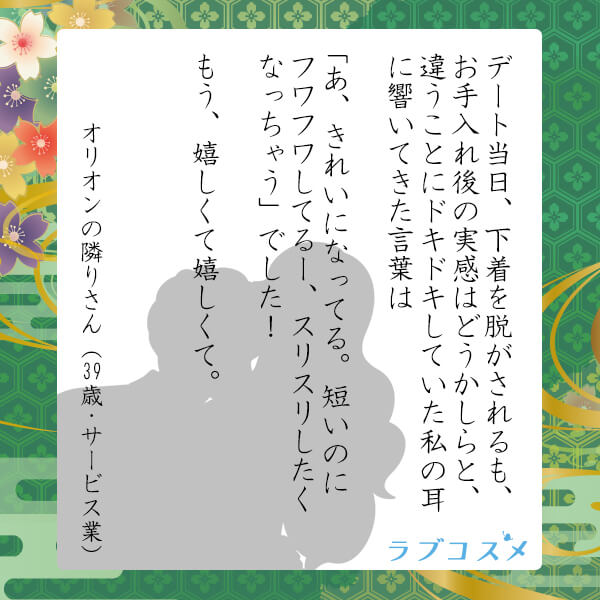 デート当日、下着を脱がされるも、
お手入れ後の実感はどうかしらと、
違うことにドキドキしていた私の耳
に響いてきた言葉は
「あ、きれいになってる。短いのに
フワフワしてるー、スリスリしたく
なっちゃう」でした！
もう、嬉しくて嬉しくて。
オリオンの隣りさん（39歳・サービス業）
ラブコスメ